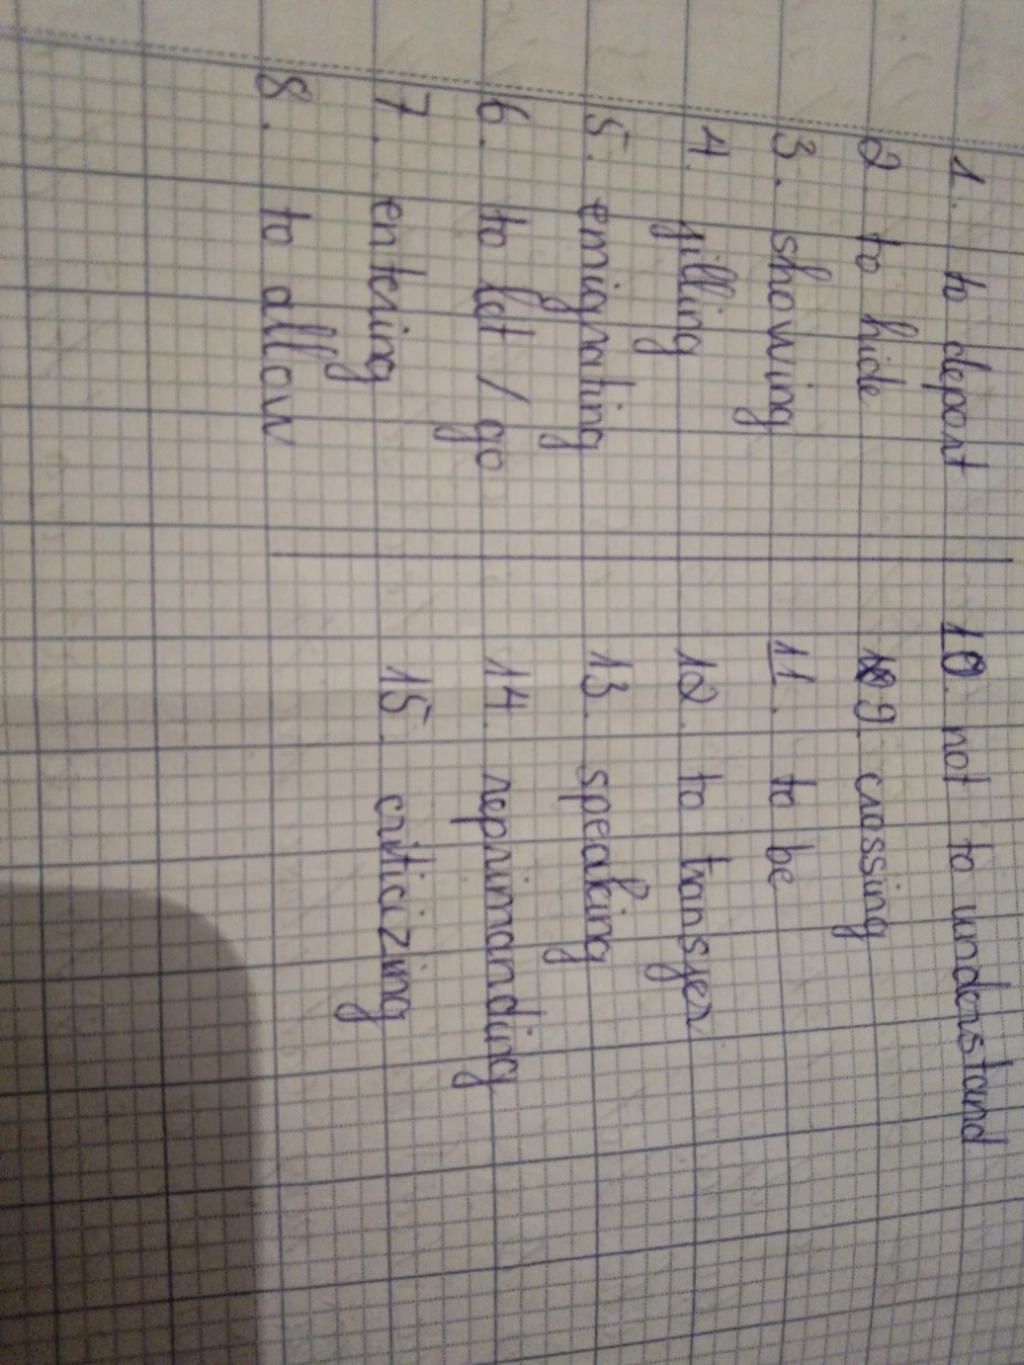 1. to depart
2. to hide
3. showing
4. filling
5. emigrating
6. to let / go
7. entering
8. to allow
10. not to understand
9. crossing
11. to be
12. to transfer
13. speaking
14. reprimanding
15. criticizing